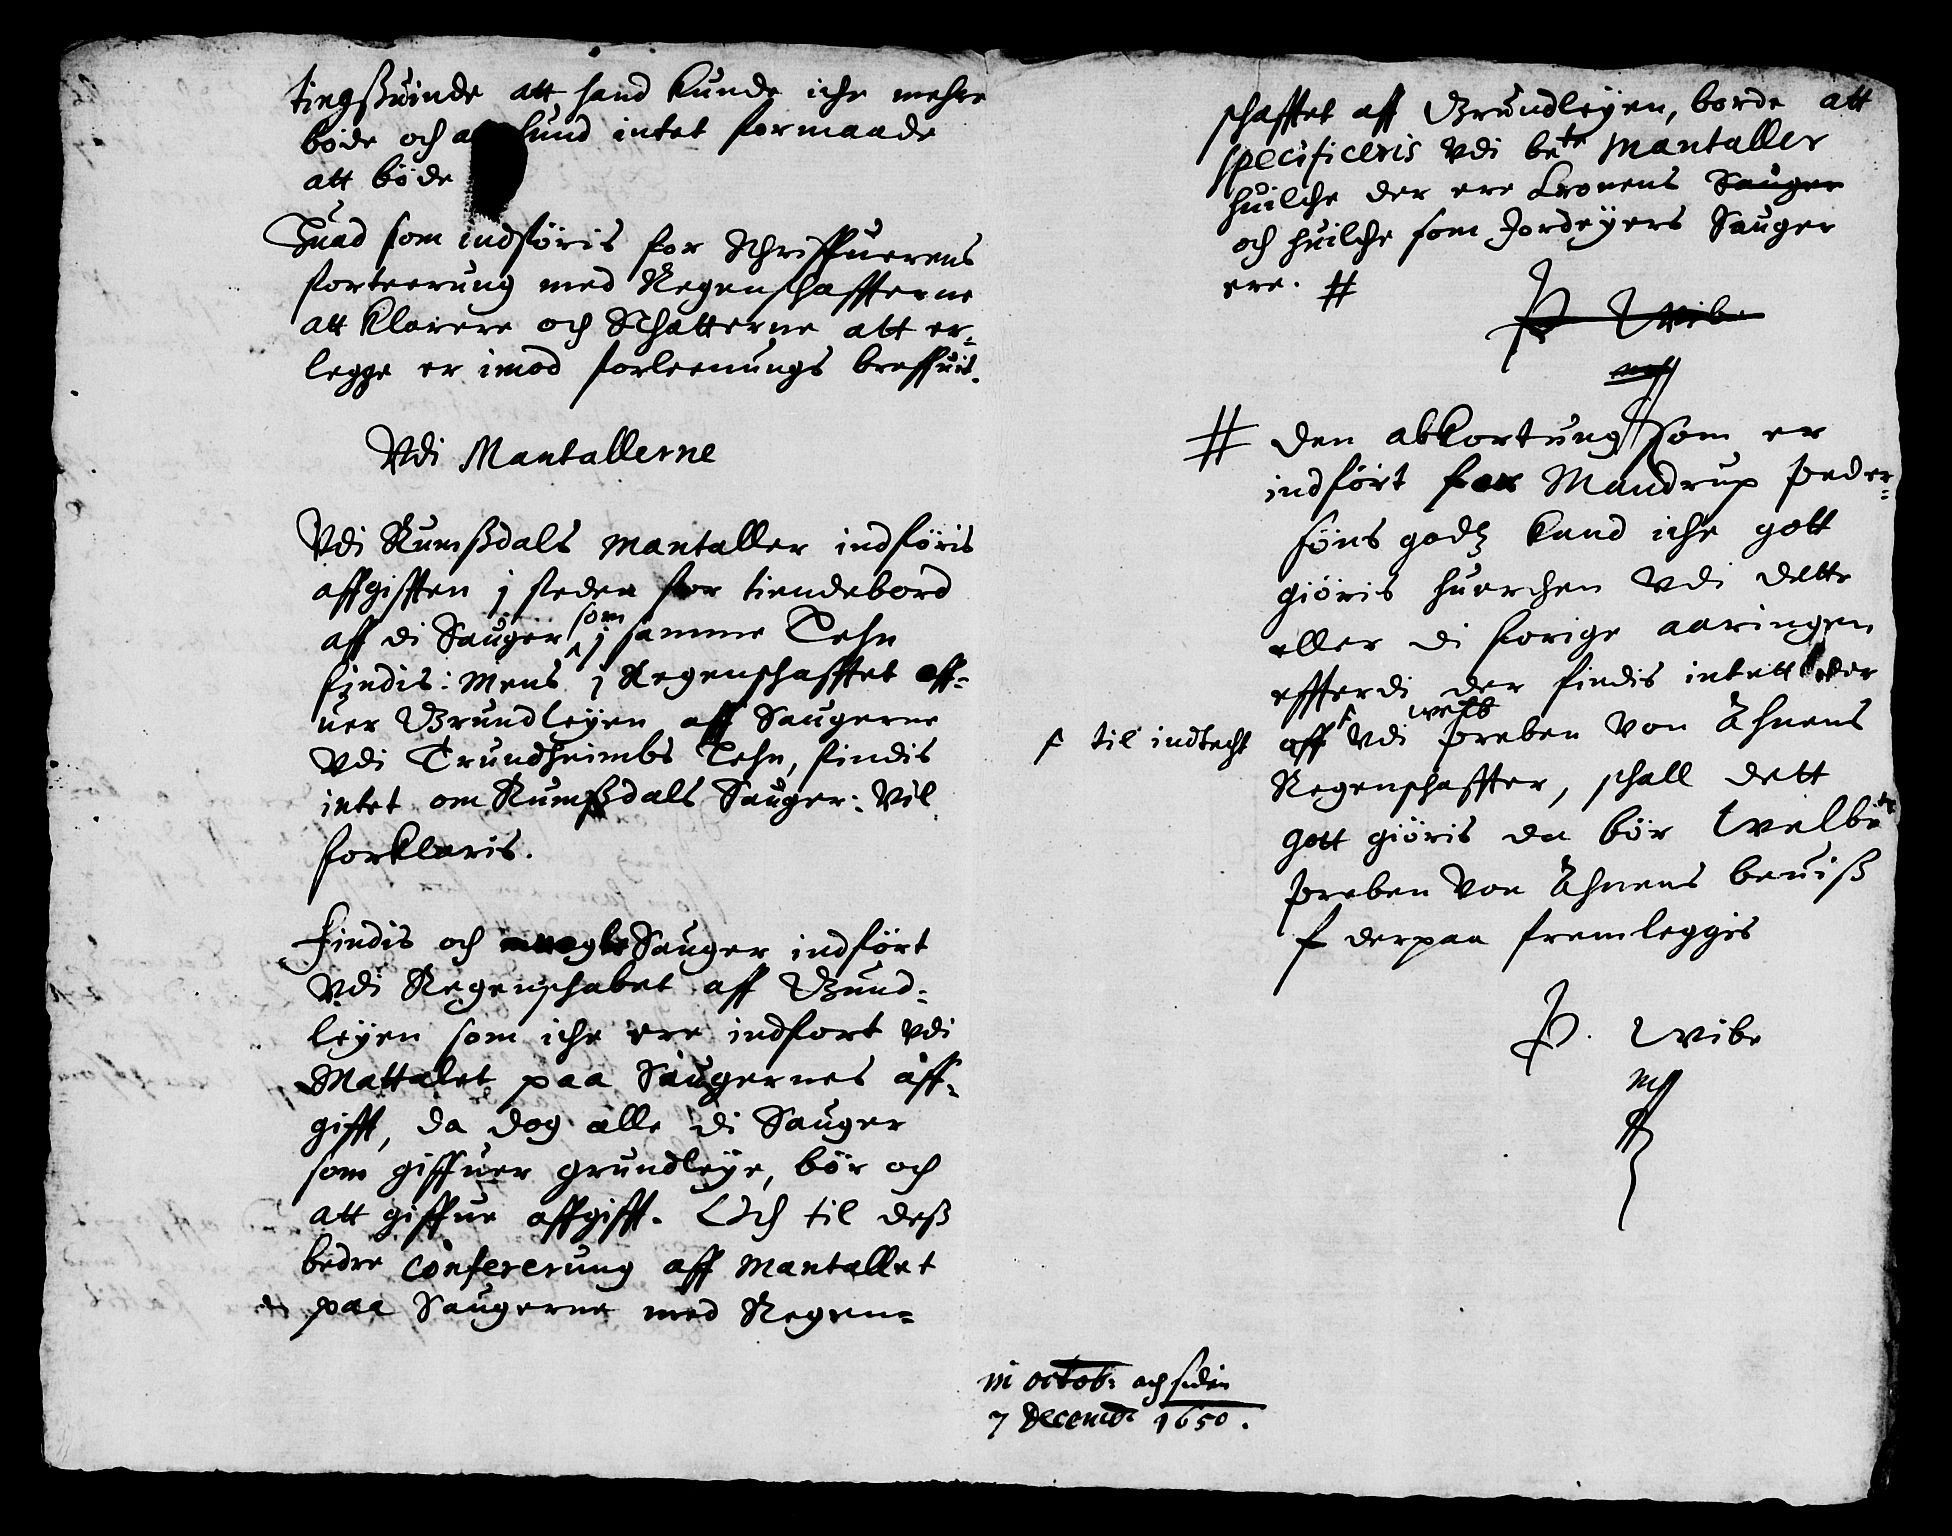 tingßuinde att hand kunde iche mehre
bøde och a lund intet formaade
att bøde
Huad som indføris for Schriffuerens
forteerung med Regenschaffterne
att klarere och Schatterne att er-
legge er imod forleenungs breffuit.
Vdi Mantallerne
Vdi Rumßdals Mantaller indføris
affgifften j steden for tiendebord
aff di Sauger som j samme Lehn
findis: Mens j Regenschafftet aff-
uer Grundleyen aff Saugerne
Vdi Trundheimbs Lehn, findis
intet om Rumßdals Sauger: Vil
forklaris.
Findis och Sauger indført
Vdi Regenschabet aff Grund-
leyen som iche ere indført vdi
Mattalet paa Saugernes aff-
gifft, da dog alle di Sauger
som giffuer grundleye, bør och
att giffue affgifft. Och til deß
bedre Confererung aff Mantallet
paa Saugerne med Regen-
schafftet aff Grundleyen, borde att
specificeris Vdi bete Mantaller
huilche der ere Cronens Sauger
och huilche som Jordeyers Sauger
ere. #
P Wibe
mp
# Den abkortung som er
indført for Mandrup Peder-
søns godtz kand iche gott
giøris huerchen Vdi dette
eller di forige aaringer
effterdi der findis intett der
aff Vdi welb Preben Von Ahnens
til indtecht
Regenschaffter, schall dett
gott giøris da bør Welbte
Preben Von Ahnens beuiß
derpaa fremleggis
P. Wibe
mp
in octob: och siden
7 Decemb 1650.